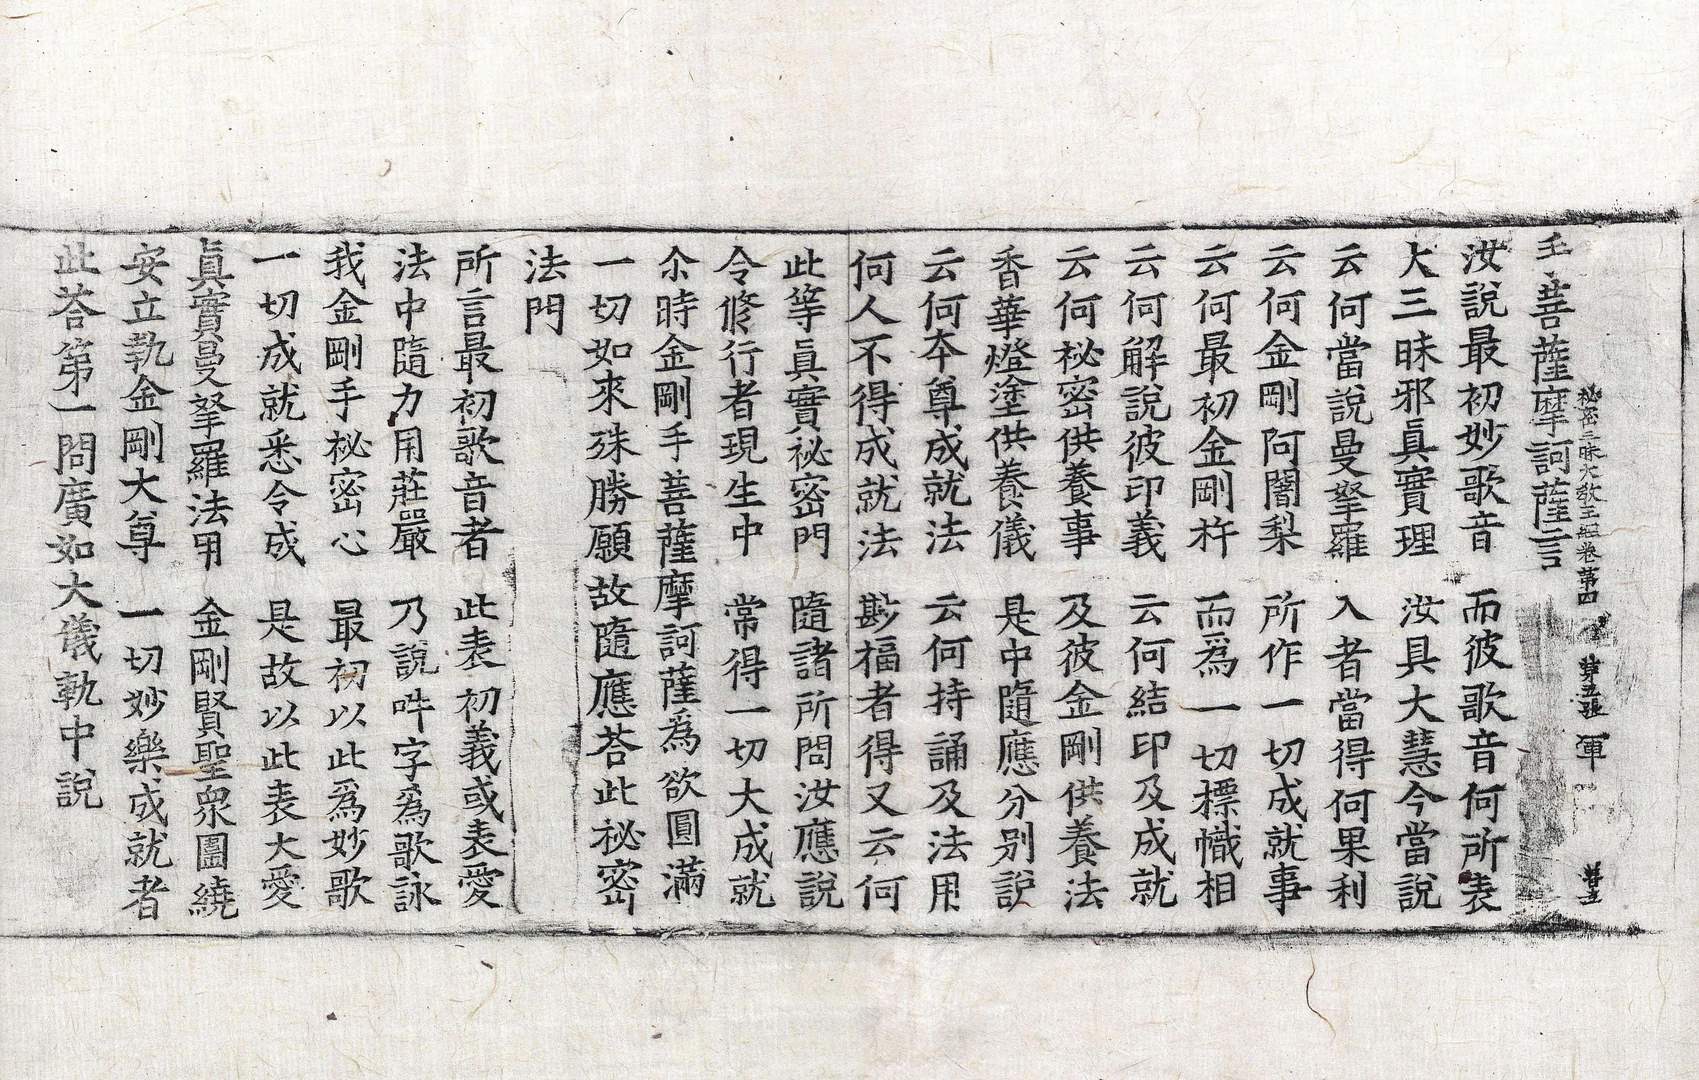 秘密三昧大教王經卷第四 第五張 軍 普立
主菩薩摩訶薩言
汝說最初妙歌音 而彼歌音何所表
大三昧邪眞實理 汝具大慧今當說
云何當說曼拏羅 入者當得何果利
云何金剛阿闍梨 所作一切成就事
云何最初金剛杵 而爲一切標幟相
云何解說彼印義 云何結印及成就
云何祕密供養事 及彼金剛供養法
香華燈塗供養儀 是中隨應分別說
云何本尊成就法 云何持誦及法用
何人不得成就法 尠福者得又云何
此等眞實祕密門 隨諸所問汝應說
令修行者現生中 常得一切大成就
尒時金剛手菩薩摩訶薩爲欲圓滿
一切如來殊勝願故隨應荅此祕密
法門
所言最初歌音者 此表初義或表愛
法中隨力用莊嚴 乃說吽字爲歌詠
我金剛手祕密心 最初以此爲妙歌
一切成就悉令成 是故以此表大愛
眞實曼拏羅法用 金剛賢聖衆圍繞
安立執金剛大尊 一切妙樂成就者
此荅第一問廣如大儀軌中說